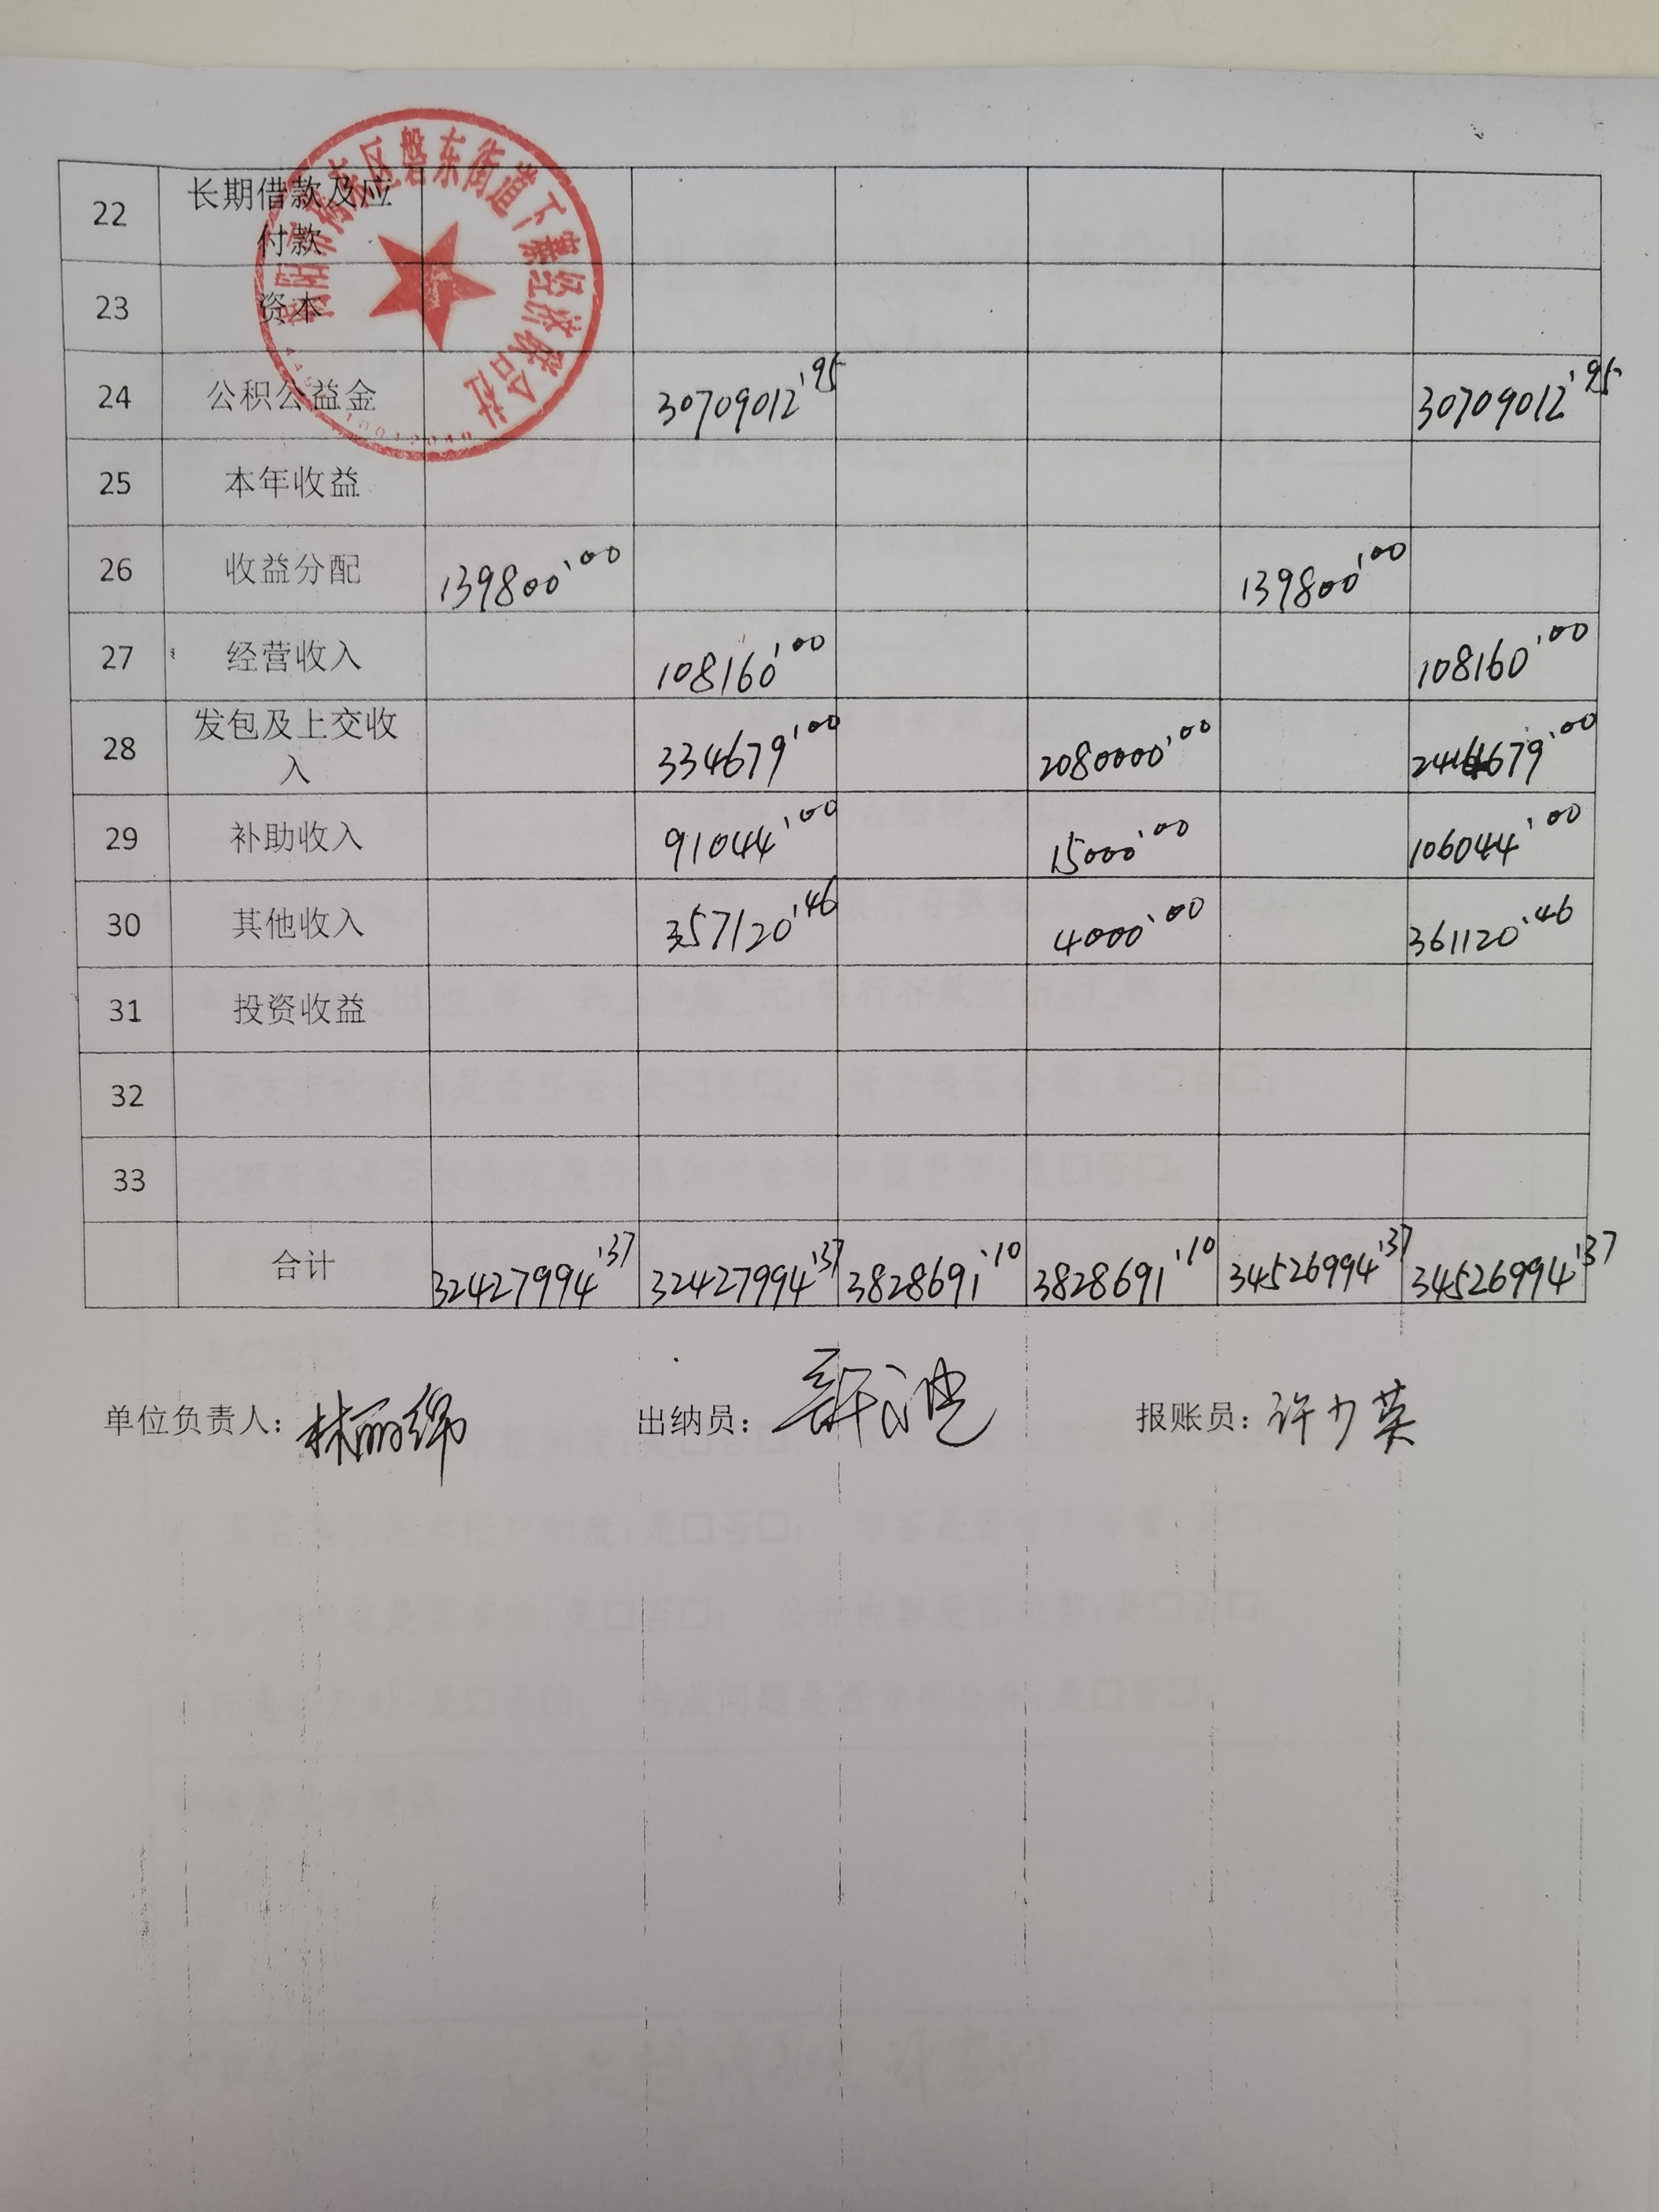 揭阳市揭东区磐东街道下寨经济联合社
22 长期借款及应
付款
23 资本
24 公积公益金 30709012.95 30709012.95
25 本年收益
26 收益分配 139800.00 139800.00
27 经营收入 108160.00 108160.00
28 发包及上交收
入 334679.00 2080000.00 2414679.00
29 补助收入 91044.00 15000.00 106044.00
30 其他收入 357120.46 4000.00 361120.46
31 投资收益
32
33
合计 32427994.37 32427994.37 3828691.10 3828691.10 34526994.37 34526994.37
单位负责人: 林丽绵 出纳员: 报账员: 许少英